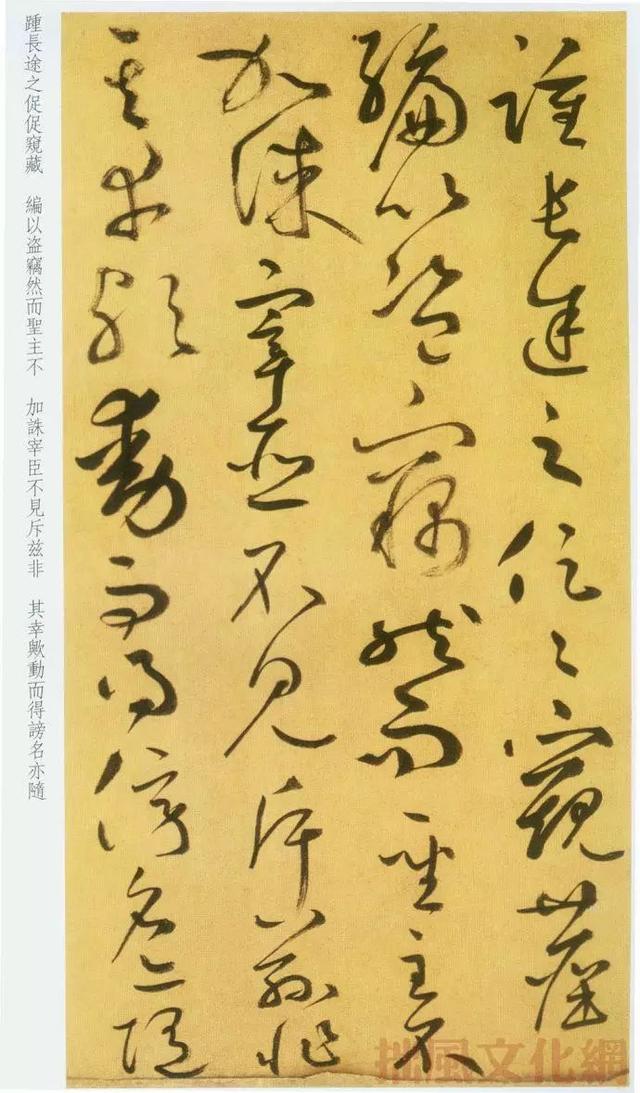 踵長途之促々窺藏
編以盜竊然而聖主不
加誅宰臣不見斥茲非
其幸歟動而得謗名亦隨
踵長途之促促窺藏　編以盜竊然而聖主不　加誅宰臣不見斥茲非　其幸歟動而得謗名亦隨
拙風文化網